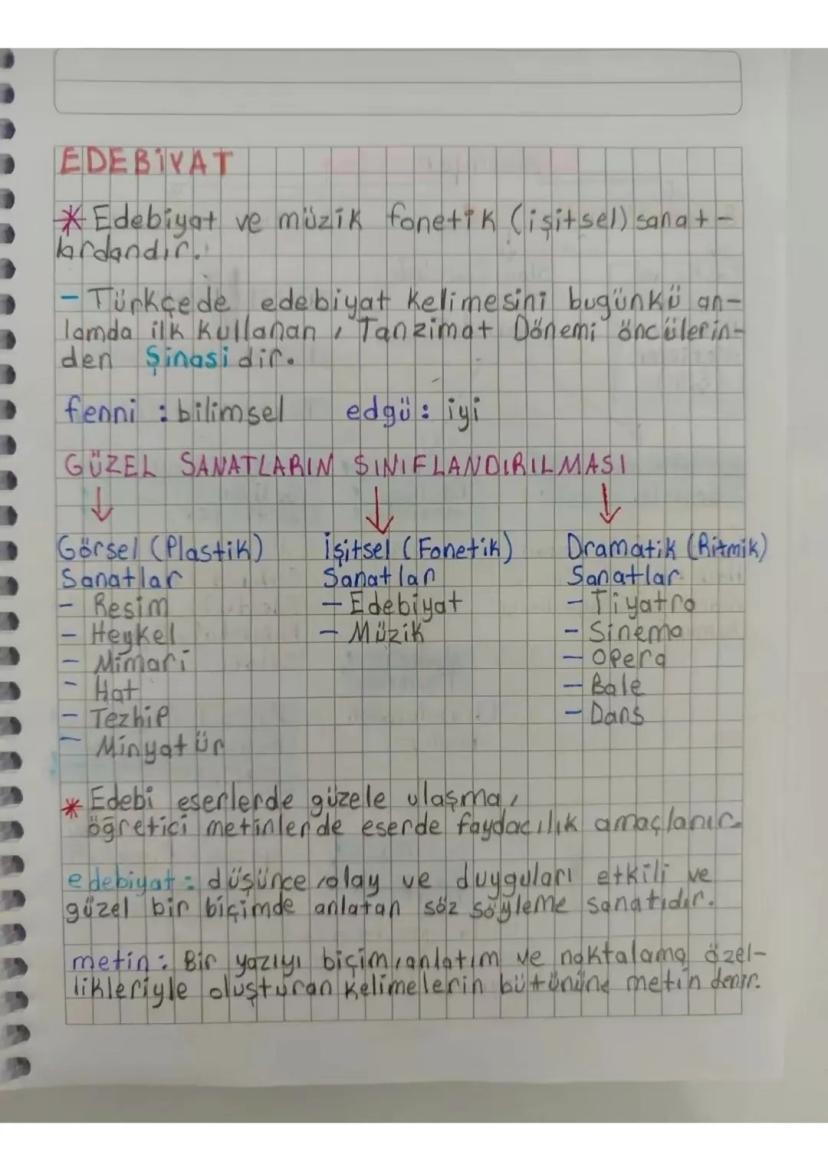 EDEBİYAT
* Edebiyat ve müzik fonetik (işitsel) sanat-
lardandır.
- Türkçede edebiyat kelimesini bugünkü an-
lamda ilk kullanan, Tanzimat Dönemi öncülerin-
den Şinasi dir.
fenni : bilimsel edgü : iyi
GÜZEL SANATLARIN SINIFLANDIRILMASI
Görsel (Plastik) İşitsel (Fonetik) Dramatik (Ritmik)
Sanatlar Sanatlar Sanatlar
- Resim - Edebiyat - Tiyatro
- Heykel - Müzik - Sinema
- Mimari - Opera
- Hat - Bale
- Tezhip - Dans
- Minyatür
* Edebi eserlerde güzele ulaşma,
öğretici metinlerde eserde faydacılık amaçlanır.
edebiyat : düşünce, olay ve duyguları etkili ve
güzel bir biçimde anlatan söz söyleme sanatıdır.
metin : Bir yazıyı biçim, anlatım ve noktalama özel-
likleriyle oluşturan kelimelerin bütününe metin denir.